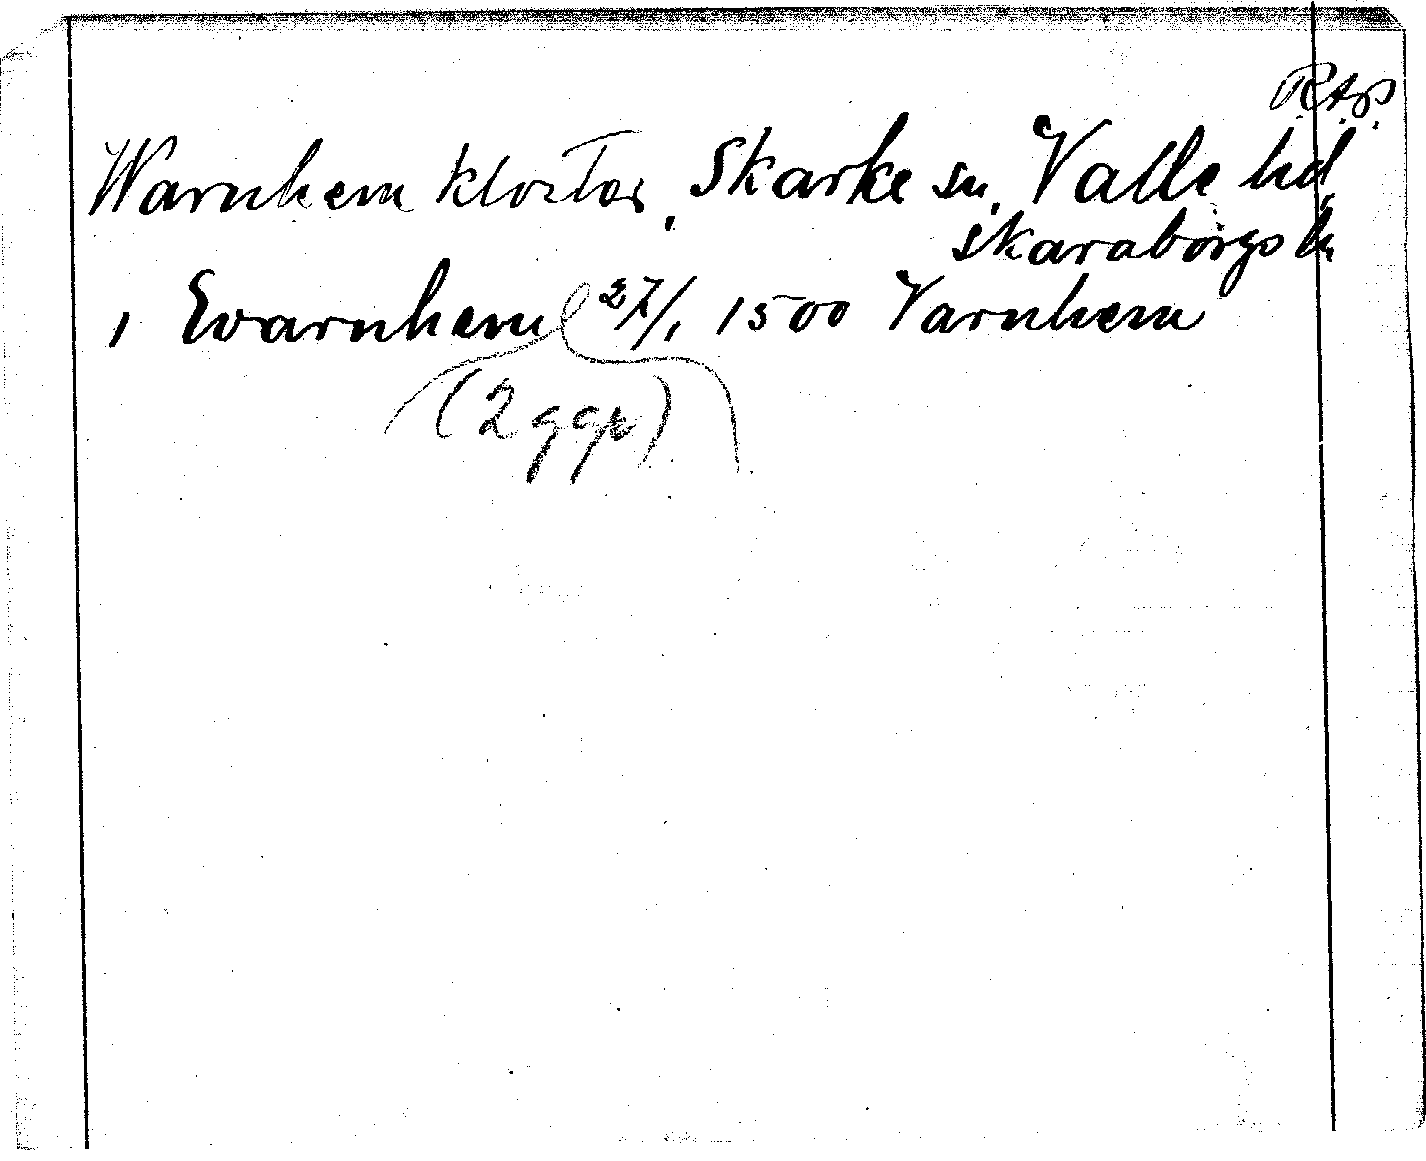 R.A.P.
Warnhem kloster, Skarke sn, Valle hd,
Skaraborgs l.
i Evarnhem 27/1 1500 Varnhem
(2 ggr)